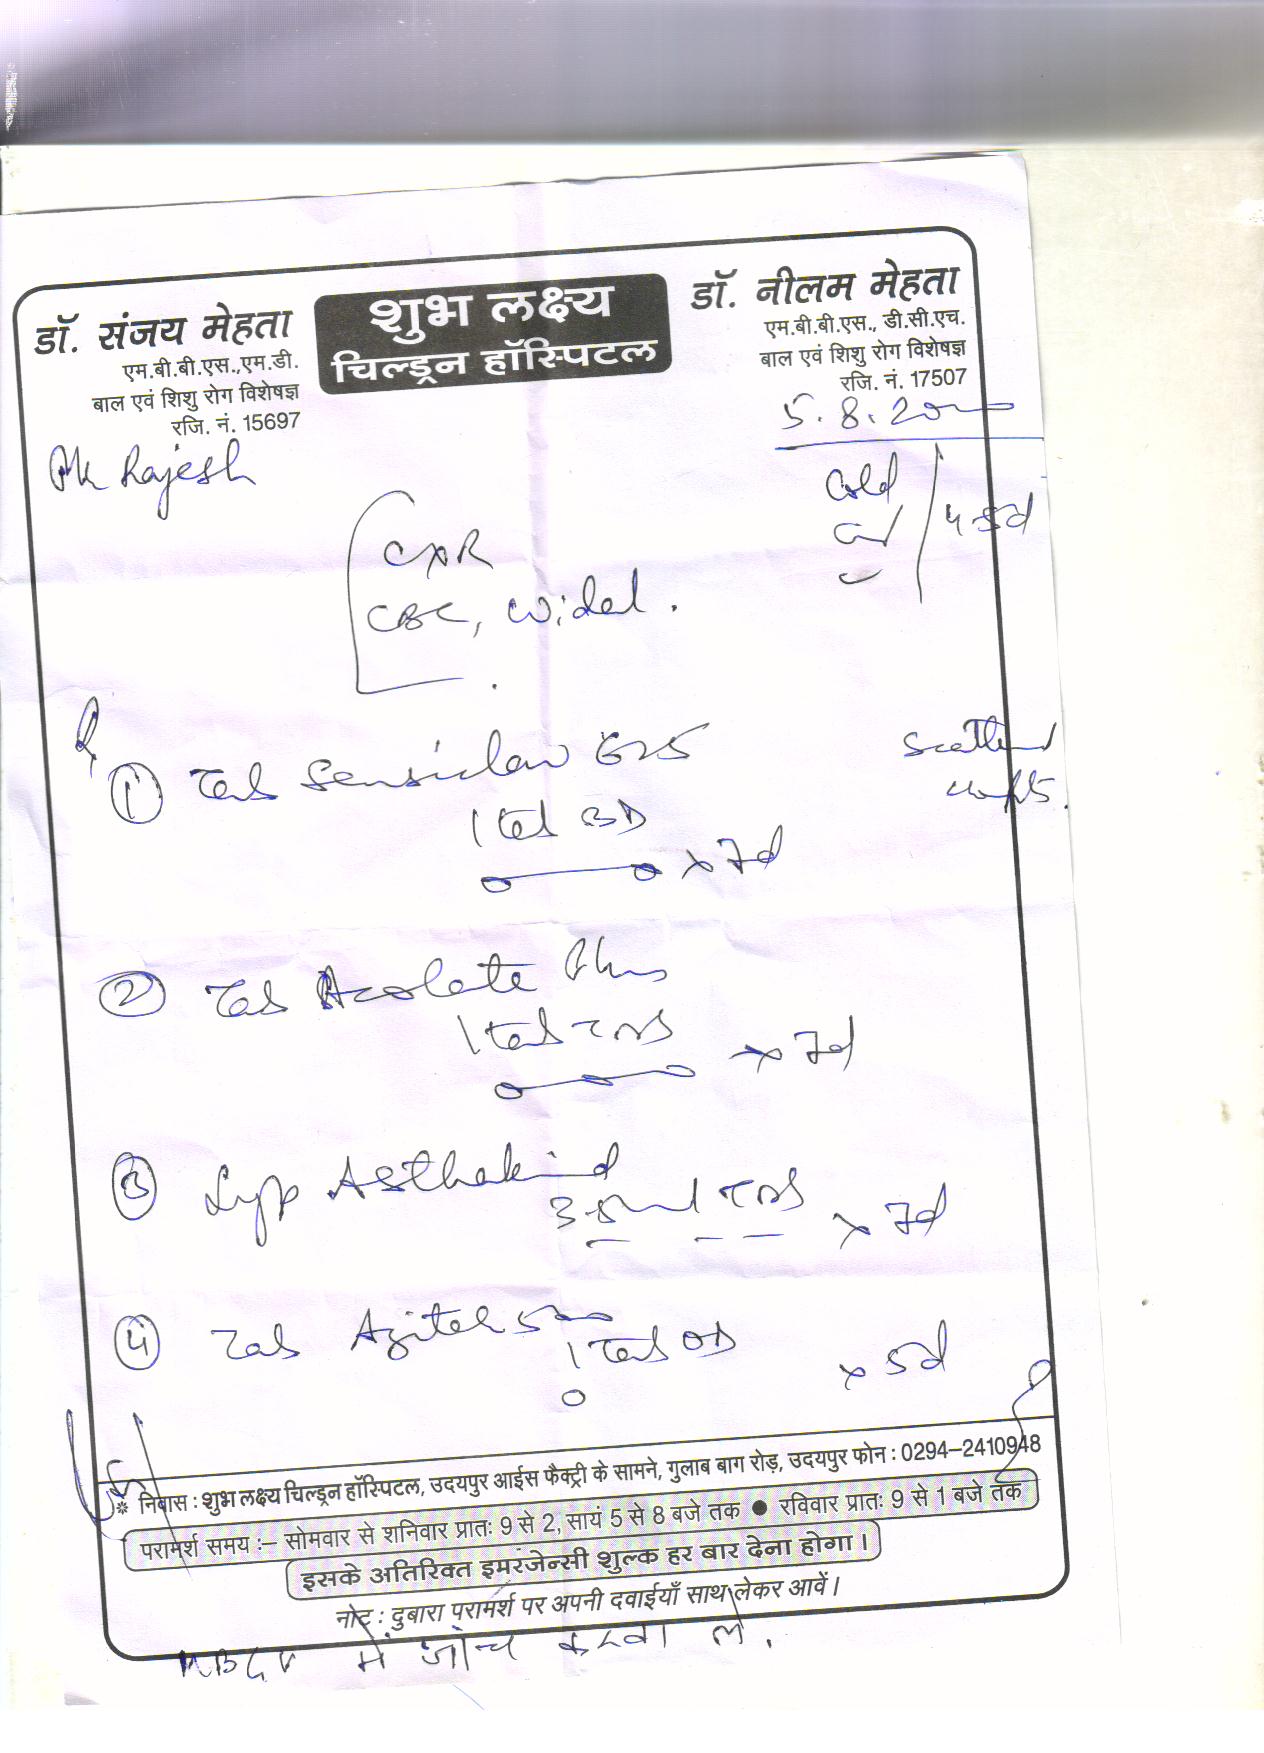 डॉ. संजय मेहता
एम.बी.बी.एस.,एम.डी.
बाल एवं शिशु रोग विशेषज्ञ
रजि. नं. 15697
शुभ लक्ष्य
चिल्ड्रन हॉस्पिटल
डॉ. नीलम मेहता
एम.बी.बी.एस., डी.सी.एच.
बाल एवं शिशु रोग विशेषज्ञ
रजि. नं. 17507
5.8.20
Rajesh
Cold
4-5d
CXR
CBC, Widal.
Scattered
① Tab Sensiclav 625
1 tab BD
x 7d
② Tab Acolate Plus
1 tab TDS
x 7d
③ Syp Asthakind
TDS x 7d
④ Tab Azitek 500
1 Tab OD
x 5d
* निवास : शुभ लक्ष्य चिल्ड्रन हॉस्पिटल, उदयपुर आईस फैक्ट्री के सामने, गुलाब बाग रोड़, उदयपुर फोन : 0294-2410948
परामर्श समय :- सोमवार से शनिवार प्रातः 9 से 2, सायं 5 से 8 बजे तक ● रविवार प्रातः 9 से 1 बजे तक
इसके अतिरिक्त इमरजेन्सी शुल्क हर बार देना होगा।
नोट : दुबारा परामर्श पर अपनी दवाईयाँ साथ लेकर आवें।
में जाँच करवा लें.